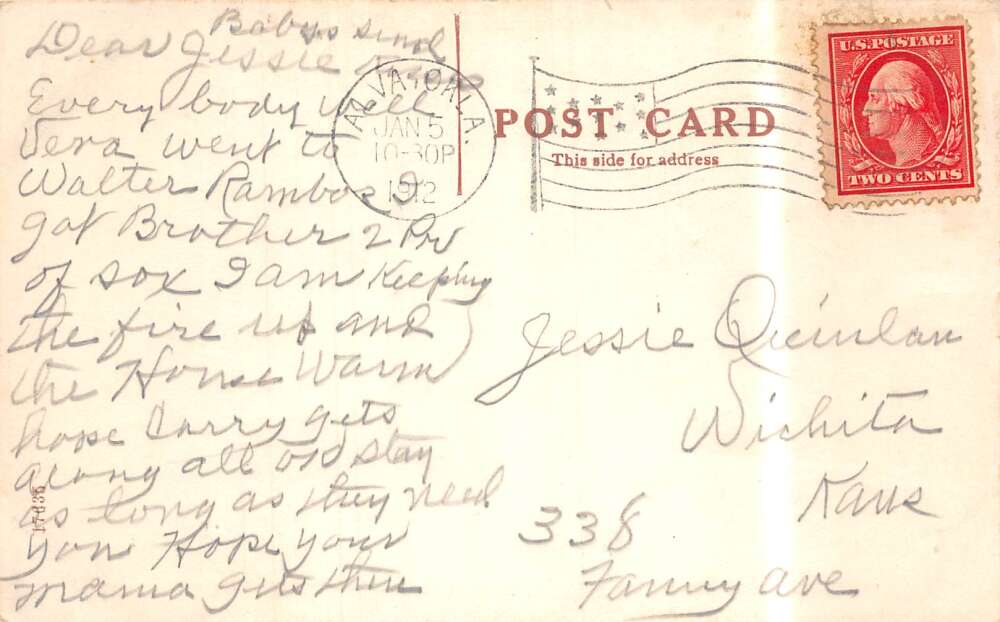 Babys send
Dear Jessie
Every body well
Vera went to
Walter Rambos I
got Brother 2 Pr
of sox I am Keeping
the fire up and
the House Warm
hope Carry gets
along all OK stay
as long as they need
you Hope your
mama gets there
17636
JAN 5
10-30P
1912
LA.
POST CARD
This side for address
U.S. POSTAGE
TWO CENTS
Jessie Quinlan
Wichita
Kans
338
Fanny ave